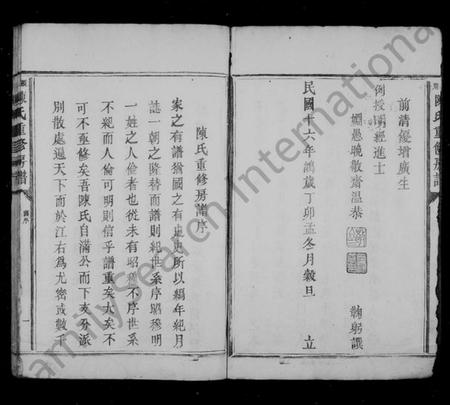 前清優增廣生
例授明經進士
姻愚晚散齋溫恭
鞠躬撰
民國十六年鴻歲丁卯孟冬月穀旦 立
陳氏重修房譜
陳氏重修房譜序
家之有譜猶國之有史史所以編年紀月
誌一朝之隆替而譜則紀世系序昭穆明
一姓之人倫者也從未有昭穆不序世系
不親而人倫可明則信乎譜重矣大矣不
可不重修矣吾陳氏自滿公而下支分派
別散處遍天下而於江右為尤密或數千
陳氏重修房譜
FamilySearch International